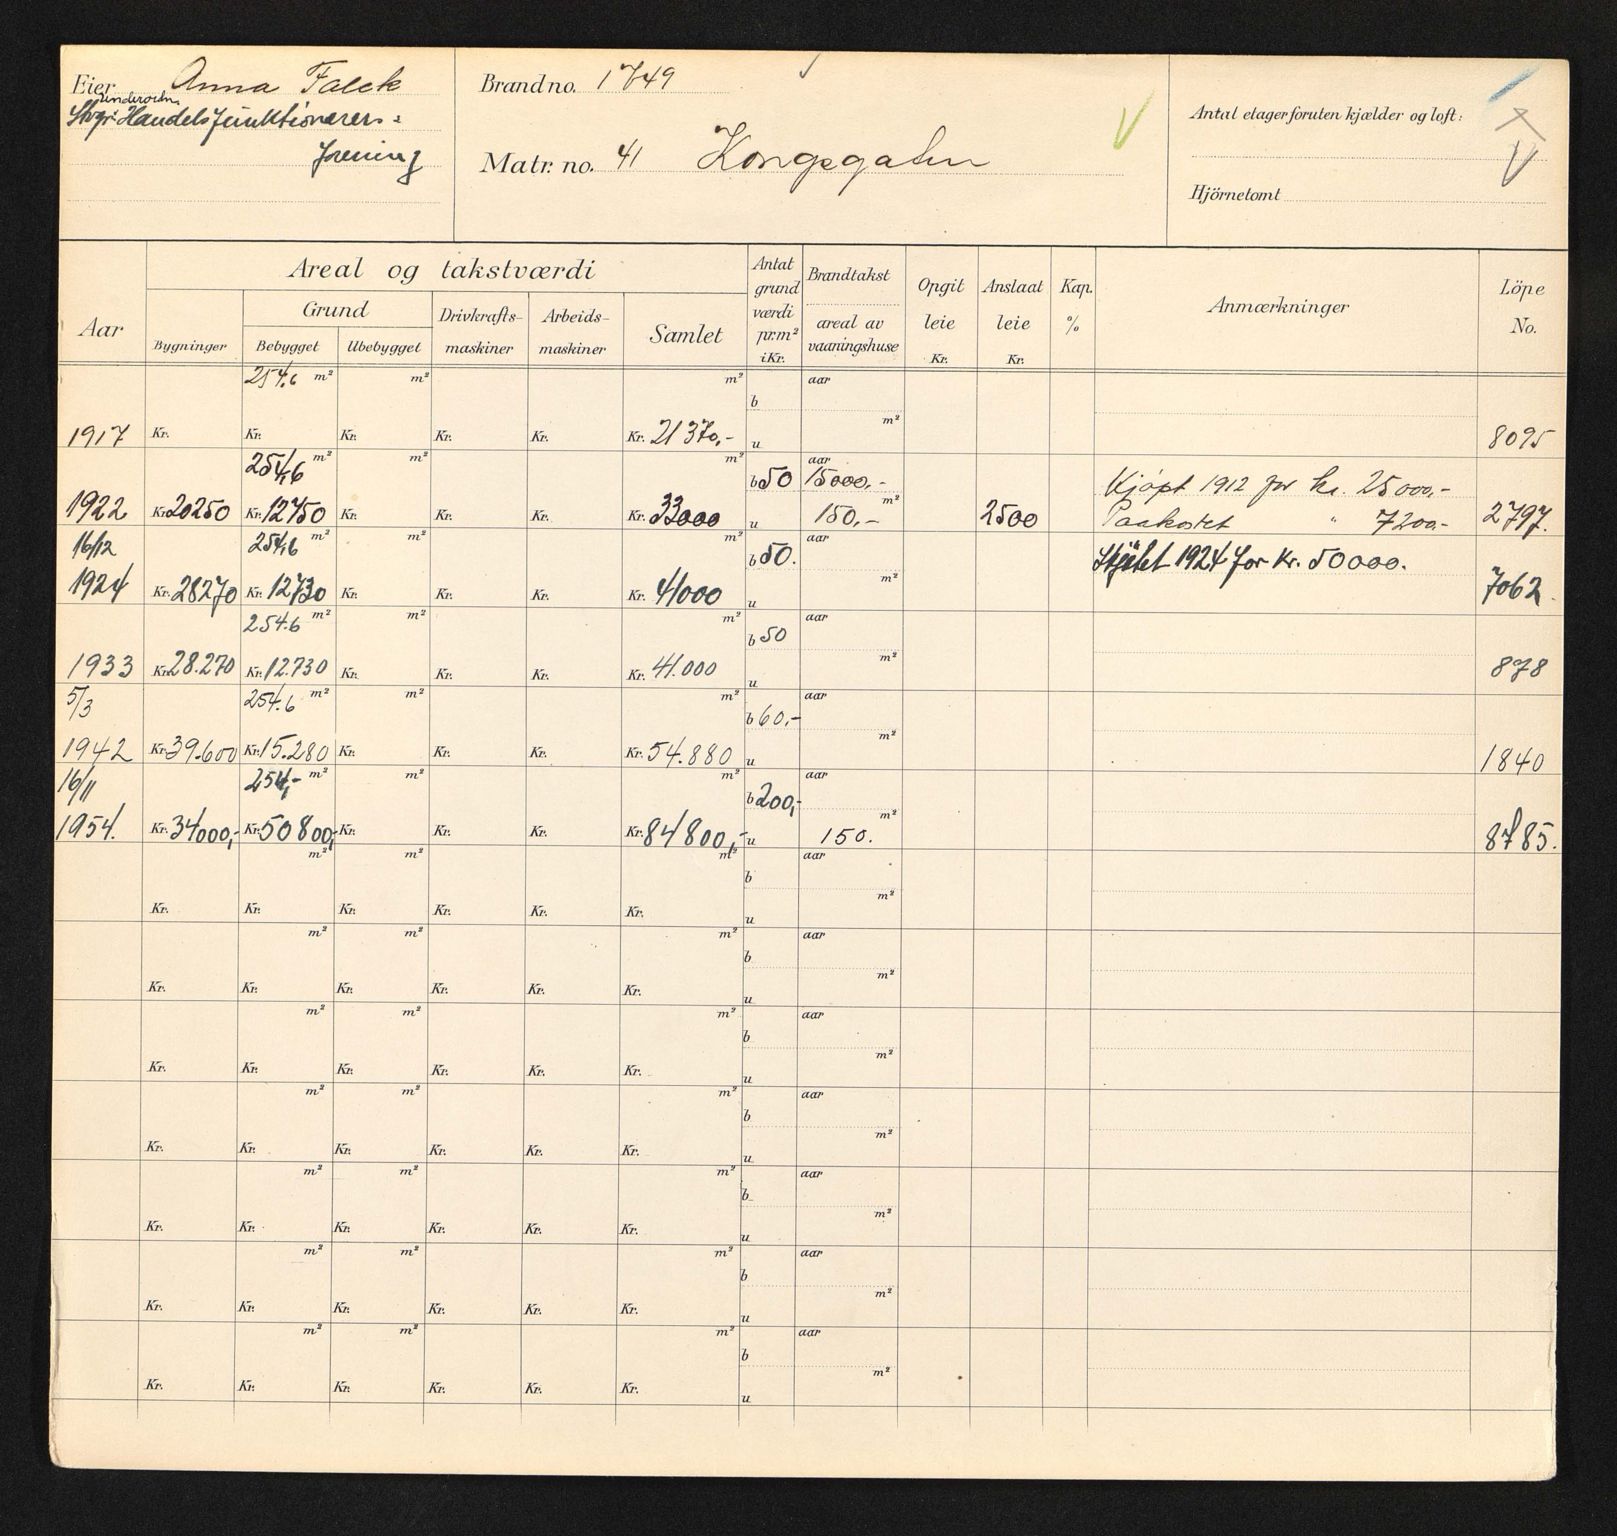 Eier Anna Falck
underordn.
Stvgr. Handelsfunktionærers=
forening
Brandno. 1749
Matr. no. 41 Kongsgaten
Antal etager foruten kjælder og loft:
Hjörnetomt
Areal og takstværdi
Aar
Bygninger
Grund
Bebygget
Ubebygget
Drivkrafts-
maskiner
Arbeids-
maskiner
Samlet
Antat
grund
værdi
pr.m²
i Kr.
Brandtakst
areal av
vaaningshuse
Opgit
leie
Kr.
Anslaat
leie
Kr.
Kap.
%
Anmærkninger
Löpe
No.
254,6 m² m² m² aar
b
m²
1917 Kr. Kr. Kr. Kr. Kr. Kr. 21370,- u 8095
254,6 m² m² m² aar
b 50 15000,- Kjöpt 1912 for kr. 25000,-
m²
1922 Kr. 20250 Kr. 12750 Kr. Kr. Kr. Kr. 33000 u 150,- 2500 Paakostet " 7200,- 2797.
16/12 254,6 m² m² m² aar
b 50. Skjötet 1924 for kr. 50000.
m²
1924 Kr. 28270 Kr. 12730 Kr. Kr. Kr. Kr. 41000 u 7062.
254.6 m² m² m² aar
b 50
m²
1933 Kr. 28.270 Kr. 12.730 Kr. Kr. Kr. Kr. 41.000 u 878
5/3 254.6 m² m² m² aar
b 60,-
m²
1942 Kr. 39.600 Kr. 15.280 Kr. Kr. Kr. Kr. 54.880 u 1840
16/11 254,- m² m² m² aar
b 200,-
m²
1954. Kr. 34000,- Kr. 50800,- Kr. Kr. Kr. Kr. 84800,- u 150. 8785.
m² m² m² aar
b
m²
Kr. Kr. Kr. Kr. Kr. Kr. u
m² m² m² aar
b
m²
Kr. Kr. Kr. Kr. Kr. Kr. u
m² m² m² aar
b
m²
Kr. Kr. Kr. Kr. Kr. Kr. u
m² m² m² aar
b
m²
Kr. Kr. Kr. Kr. Kr. Kr. u
m² m² m² aar
b
m²
Kr. Kr. Kr. Kr. Kr. Kr. u
m² m² m² aar
b
m²
Kr. Kr. Kr. Kr. Kr. Kr. u
m² m² m² aar
b
m²
Kr. Kr. Kr. Kr. Kr. Kr. u